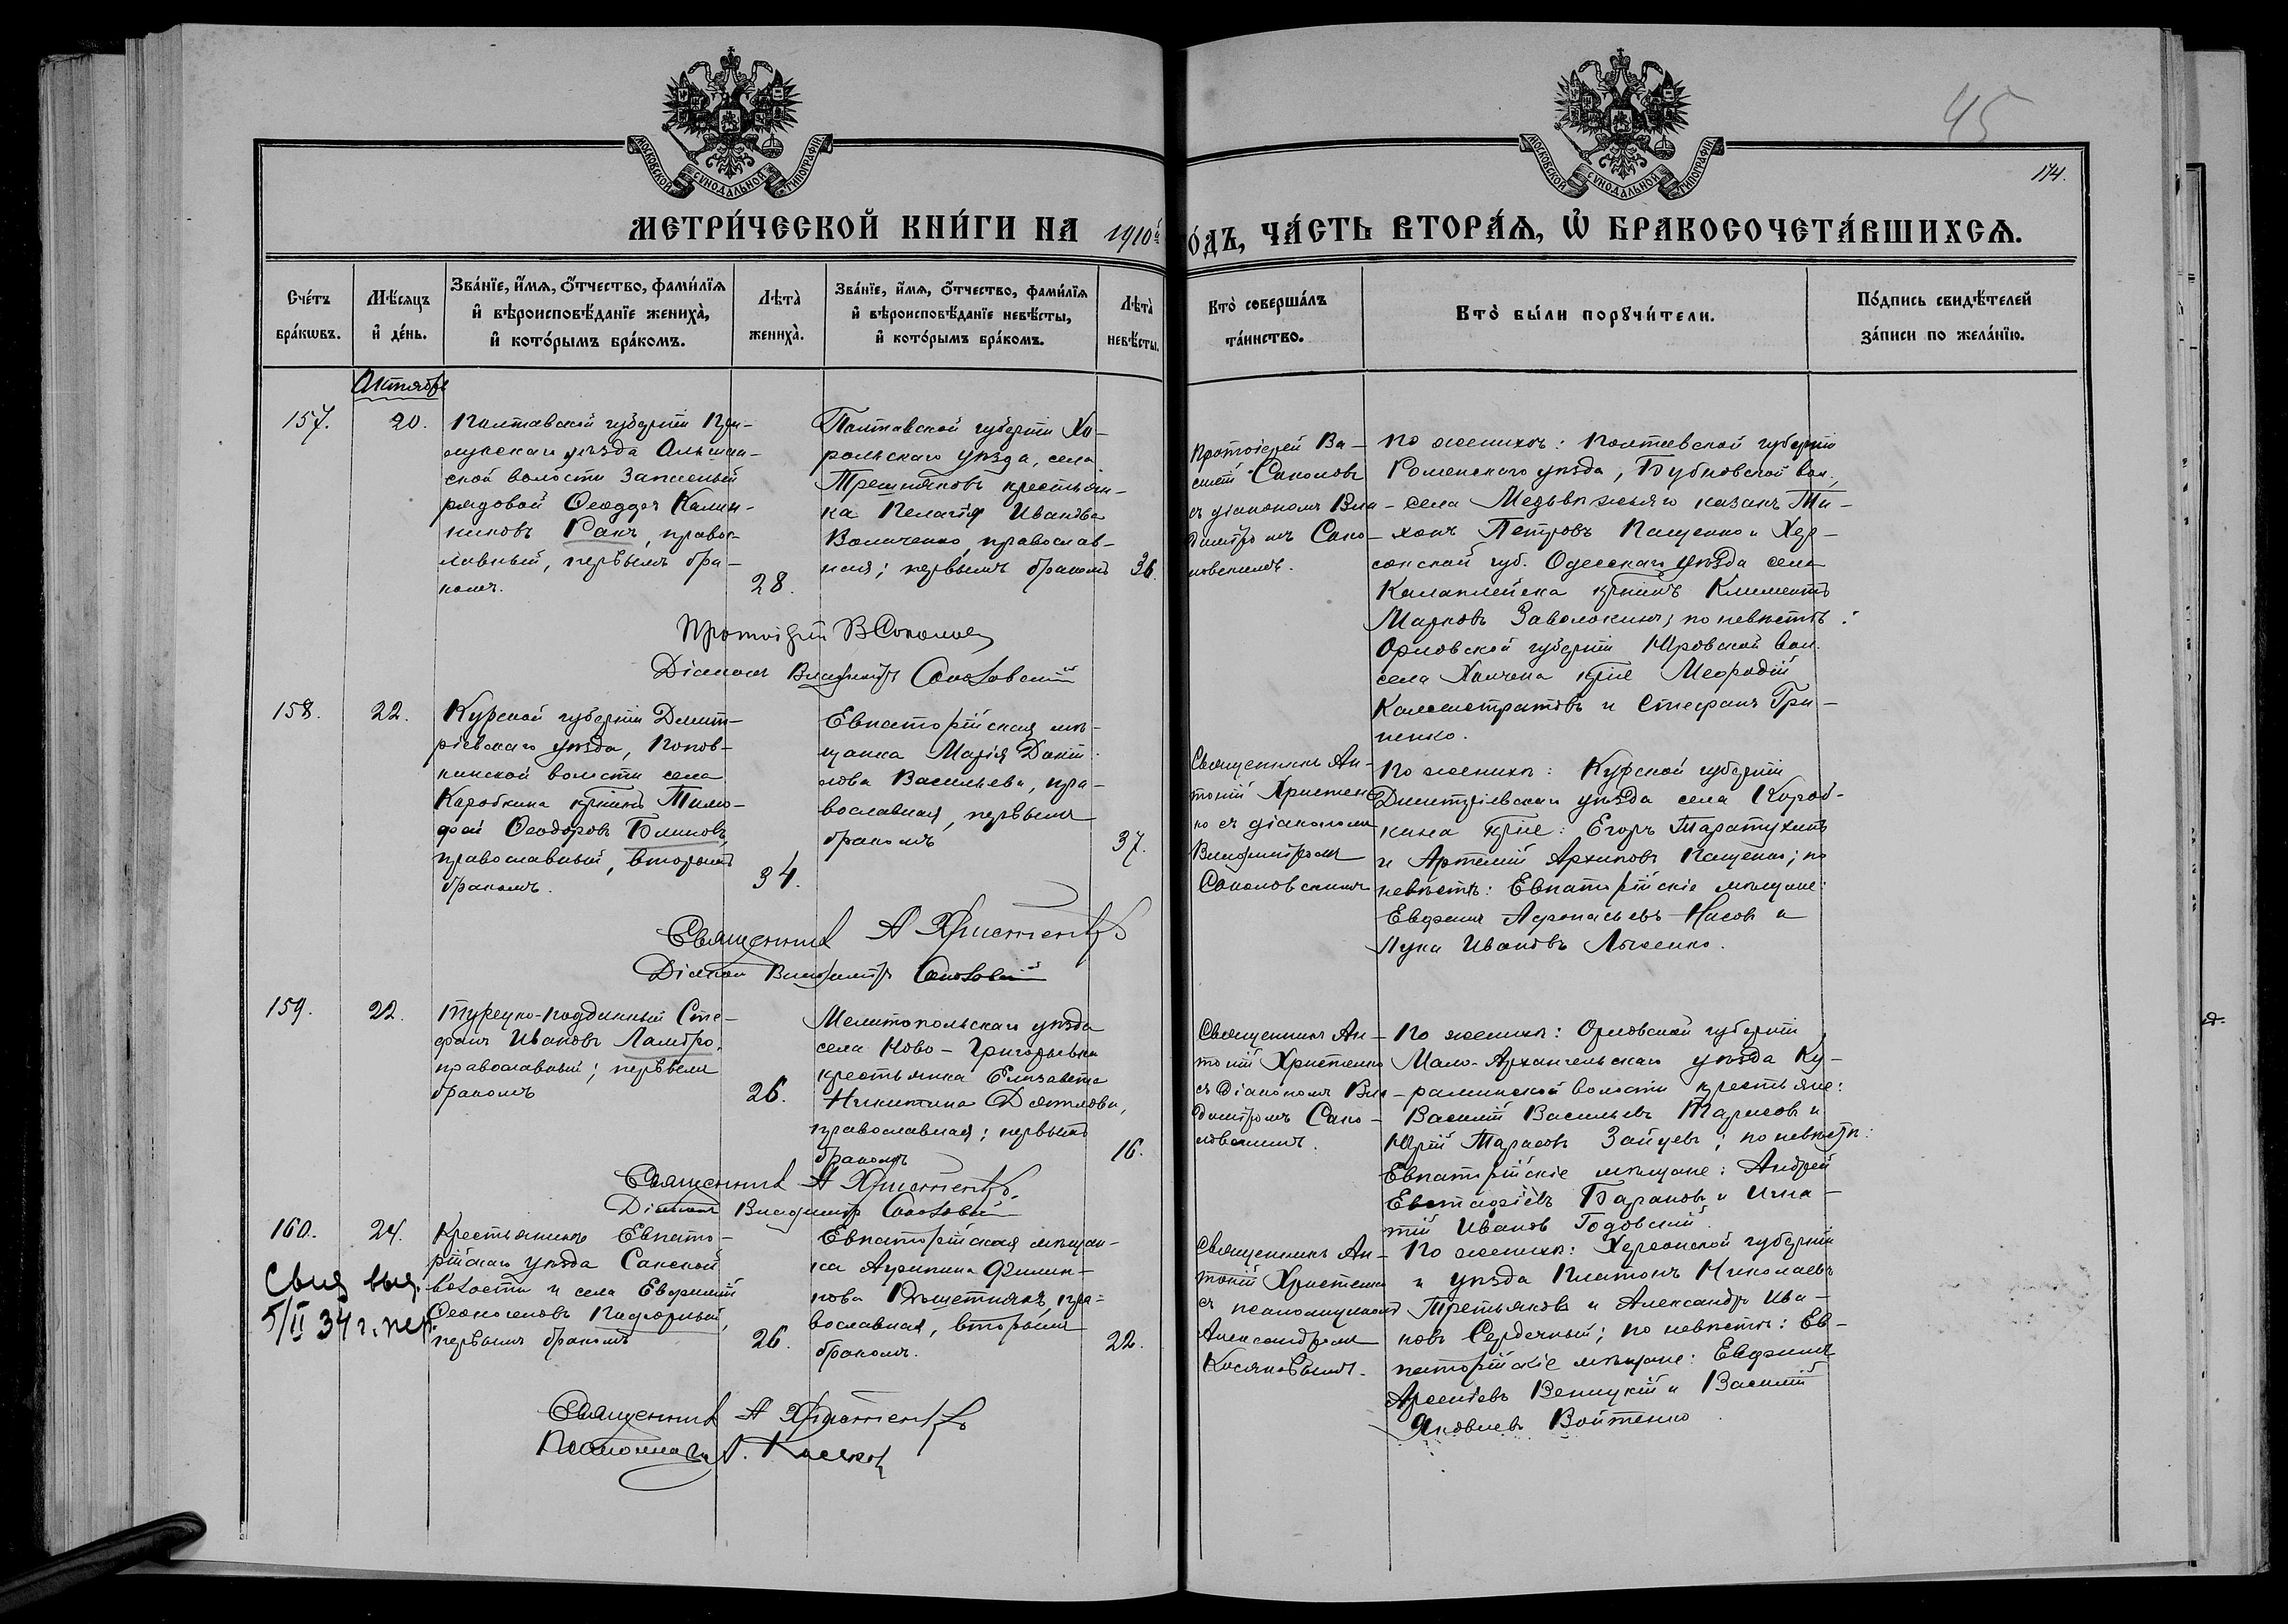 45
174.
МОСКОВСКОЙ СѴНОДАЛЬНОЙ ТИПОГРАФІИ
МОСКОВСКОЙ СѴНОДАЛЬНОЙ ТИПОГРАФІИ
МЕТРИ́ЧЕСКОЙ КНИ́ГИ НА 1910й
ОДЪ, ЧА́СТЬ ВТОРА́Ѧ, Ѡ БРАКОСОЧЕТА́ВШИХСѦ.
Сче́тъ бра́кѡвъ.
Мѣ́сяцъ и де́нь.
Зва́нїе, и́мѧ, ѻ́тчество, фами́лїѧ
и вѣроисповѣ́данїе жениха̀,
и кото́рымъ бра́комъ.
Лѣта̀ жениха̀.
Зва́нїе, и́мѧ, ѻ́тчество, фами́лїѧ
и вѣроисповѣ́данїе невѣ́сты,
и кото́рымъ бра́комъ.
Лѣта̀ невѣ́сты.
Кто̀ соверша́лъ та́инство.
Кто̀ бы́ли порꙋчи́тели.
По́дпись свидѣ́телей
за́писи по жела́нїю.
Октябрь
157.
20.
Полтавской губерніи При-
лукскаго уѣзда Ольшан-
ской волости запасный
рядовой Ѳеодоръ Калин-
никовъ Ракъ, правос-
лавный, первымъ бра-
комъ.
28.
Полтавской губерніи Хо-
рольскаго уѣзда, села
крестьян-
ка Пелагія Иванова
Волыченко, православ-
ная; первымъ бракомъ
36.
Протоіерей Ва-
силій Соколовъ
съ діакономъ Вла-
диміромъ Соко-
ловскимъ.
По женихѣ: Полтавской губерніи
Роменскаго уѣзда, Бубновской вол.,
села Медвѣжьяго казакъ Ти-
хонъ Петровъ Пащенко и Хер-
сонской губ. Одесскаго уѣзда села
кр-нинъ Климентъ
Марковъ Заволокинъ; по невѣстѣ:
Орловской губерніи Юровской вол.
села кр-не Меѳодій
Каллистратовъ и Стефанъ Гри-
ненко.
Протоіерей В Соколовъ
Діаконъ Владиміръ Соколовскій
158.
22.
Курской губерніи Дмит-
ріевскаго уѣзда, Попов-
кинской волости села
Каробкина кр-нинъ Тимо-
фей Ѳеодоровъ Блиновъ,
православный, вторымъ
бракомъ.
34.
Евпаторійская мѣ-
щанка Марія Даніи-
лова Васильева, пра-
вославная, первымъ
бракомъ
37.
Священникъ Ан-
тоній Христен-
ко съ діакономъ
Владиміромъ
Соколовскимъ
По женихѣ: Курской губерніи
Дмитріевскаго уѣзда села Короб-
кина кр-не: Егоръ Таратухинъ
и Артемій Архиповъ Пащенко; по
невѣстѣ: Евпаторійскіе мѣщане:
Евфимъ Аѳанасьевъ Носовъ и
Лука Ивановъ Лысенко.
Священникъ А Христенко
Діаконъ Владиміръ Соколовскій
159.
22.
Турецко-подданный Сте-
фанъ Ивановъ Ламбро,
православный; первымъ
бракомъ
26.
Мелитопольскаго уѣзда
села Ново-Григорьевки
крестьянка Елизавета
Никитина Дятлова,
православная; первымъ
бракомъ
16.
Священникъ Ан-
тоній Христенко
съ діакономъ Вла-
диміромъ Соко-
ловскимъ.
По женихѣ: Орловской губерніи
Мало-Архангельскаго уѣзда Ку-
ракинской волости крестьяне:
Василій Васильевъ Тарасовъ и
Юрій Тарасовъ Зайцевъ; по невѣстѣ:
Евпаторійскіе мѣщане: Андрей
Евстафіевъ Барановъ и Игна-
тій Ивановъ Годовскій.
Священникъ А Христенко.
Діаконъ Владиміръ Соколовскій
160.
24.
Свид выд.
5/II 34 г. пер.
Крестьянинъ Евпато-
рійскаго уѣзда Сакской
волости и села Евфимій
Ѳеоктистовъ Подгорный,
первымъ бракомъ
26.
Евпаторійская мѣщан-
ка Агрипина Филип-
пова Рѣшетнякъ, пра-
вославная, вторымъ
бракомъ.
22.
Священникъ Ан-
тоній Христенко
съ псаломщикомъ
Александромъ
Косяковымъ.
По женихѣ: Херсонской губерніи
и уѣзда Платонъ Николаевъ
Третьяковъ и Александръ Ива-
новъ Сердечный; по невѣстѣ: Ев-
паторійскіе мѣщане: Евфимъ
Арсеніевъ Веницкій и Василій
Яковлевъ Войтенко
Священникъ А Христенко
Псаломщикъ А. Косяковъ